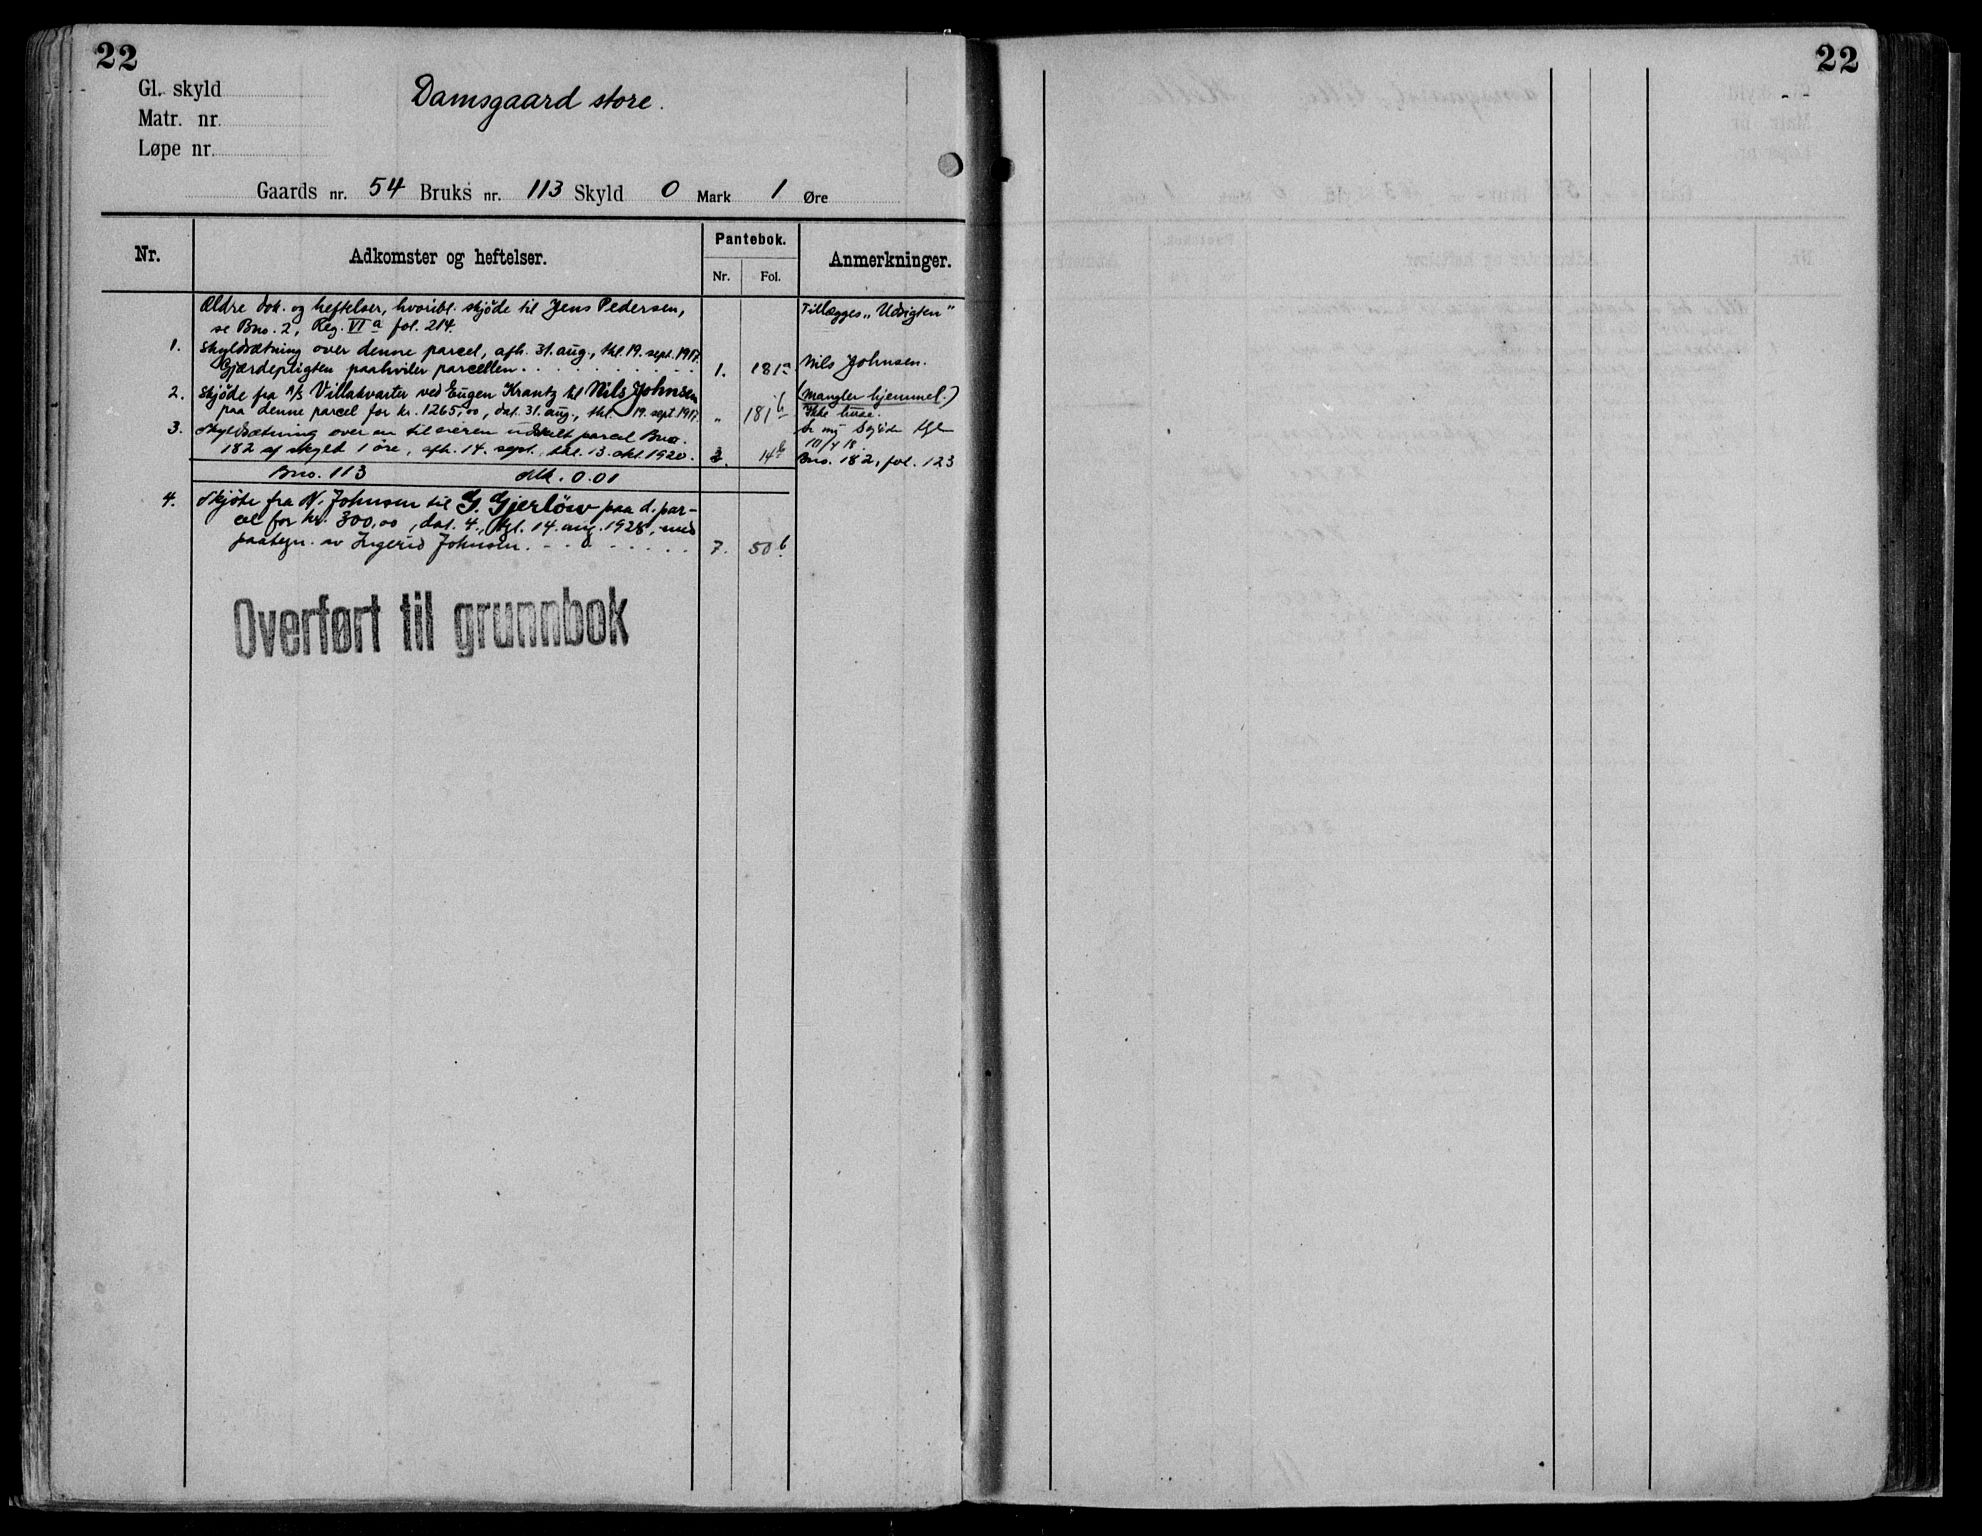 22
22
Gl. skyld
Damsgaard store.
Matr. nr.
Løpe nr.
Gaards nr. 54 Bruks nr. 113 Skyld 0 Mark 1 Øre
Nr.
Adkomster og heftelser.
Pantebok.
Nr. Fol.
Anmerkninger.
Ældre dok. og heftelser, hvoribl. skjøde til Jens Pedersen,
se Bno. 2, Reg. VI a fol. 214.
Tillægges „Udsigten"
1. Skyldsætning over denne parcel, afh. 31. aug., thl. 19. sept. 1917.
Gjærdepligten paahviler parcellen . . . . . . . . . 1. 181 a
Nils Johnsen.
2. Skjøde fra A/S Villakvarter ved Eugen Krantz til Nils Johnsen
paa denne parcel for kr. 1265,00, dat. 31. aug., thl. 19. sept. 1917. „ 181 b
(Mangler hjemmel.)
Ikke huse.
Se ny Skjøde tgl
10/4 18.
3. Skyldsætning over en til veien udskilt parcel Bno.
182 af skyld 1 øre, afh. 14. sept., thl. 13. okt. 1920. 3. 14 b
Bno. 182, fol. 123
Bno. 113 Mk. 0.01
4. Skjøte fra N. Johnsen til G. Gjerlöw paa d. par-
cel for kr. 300,00, dat. 4., tgl. 14. aug. 1928, med
paategn. av Ingerid Johnsen . . . . . . . . 7. 50 b
Overført til grunnbok